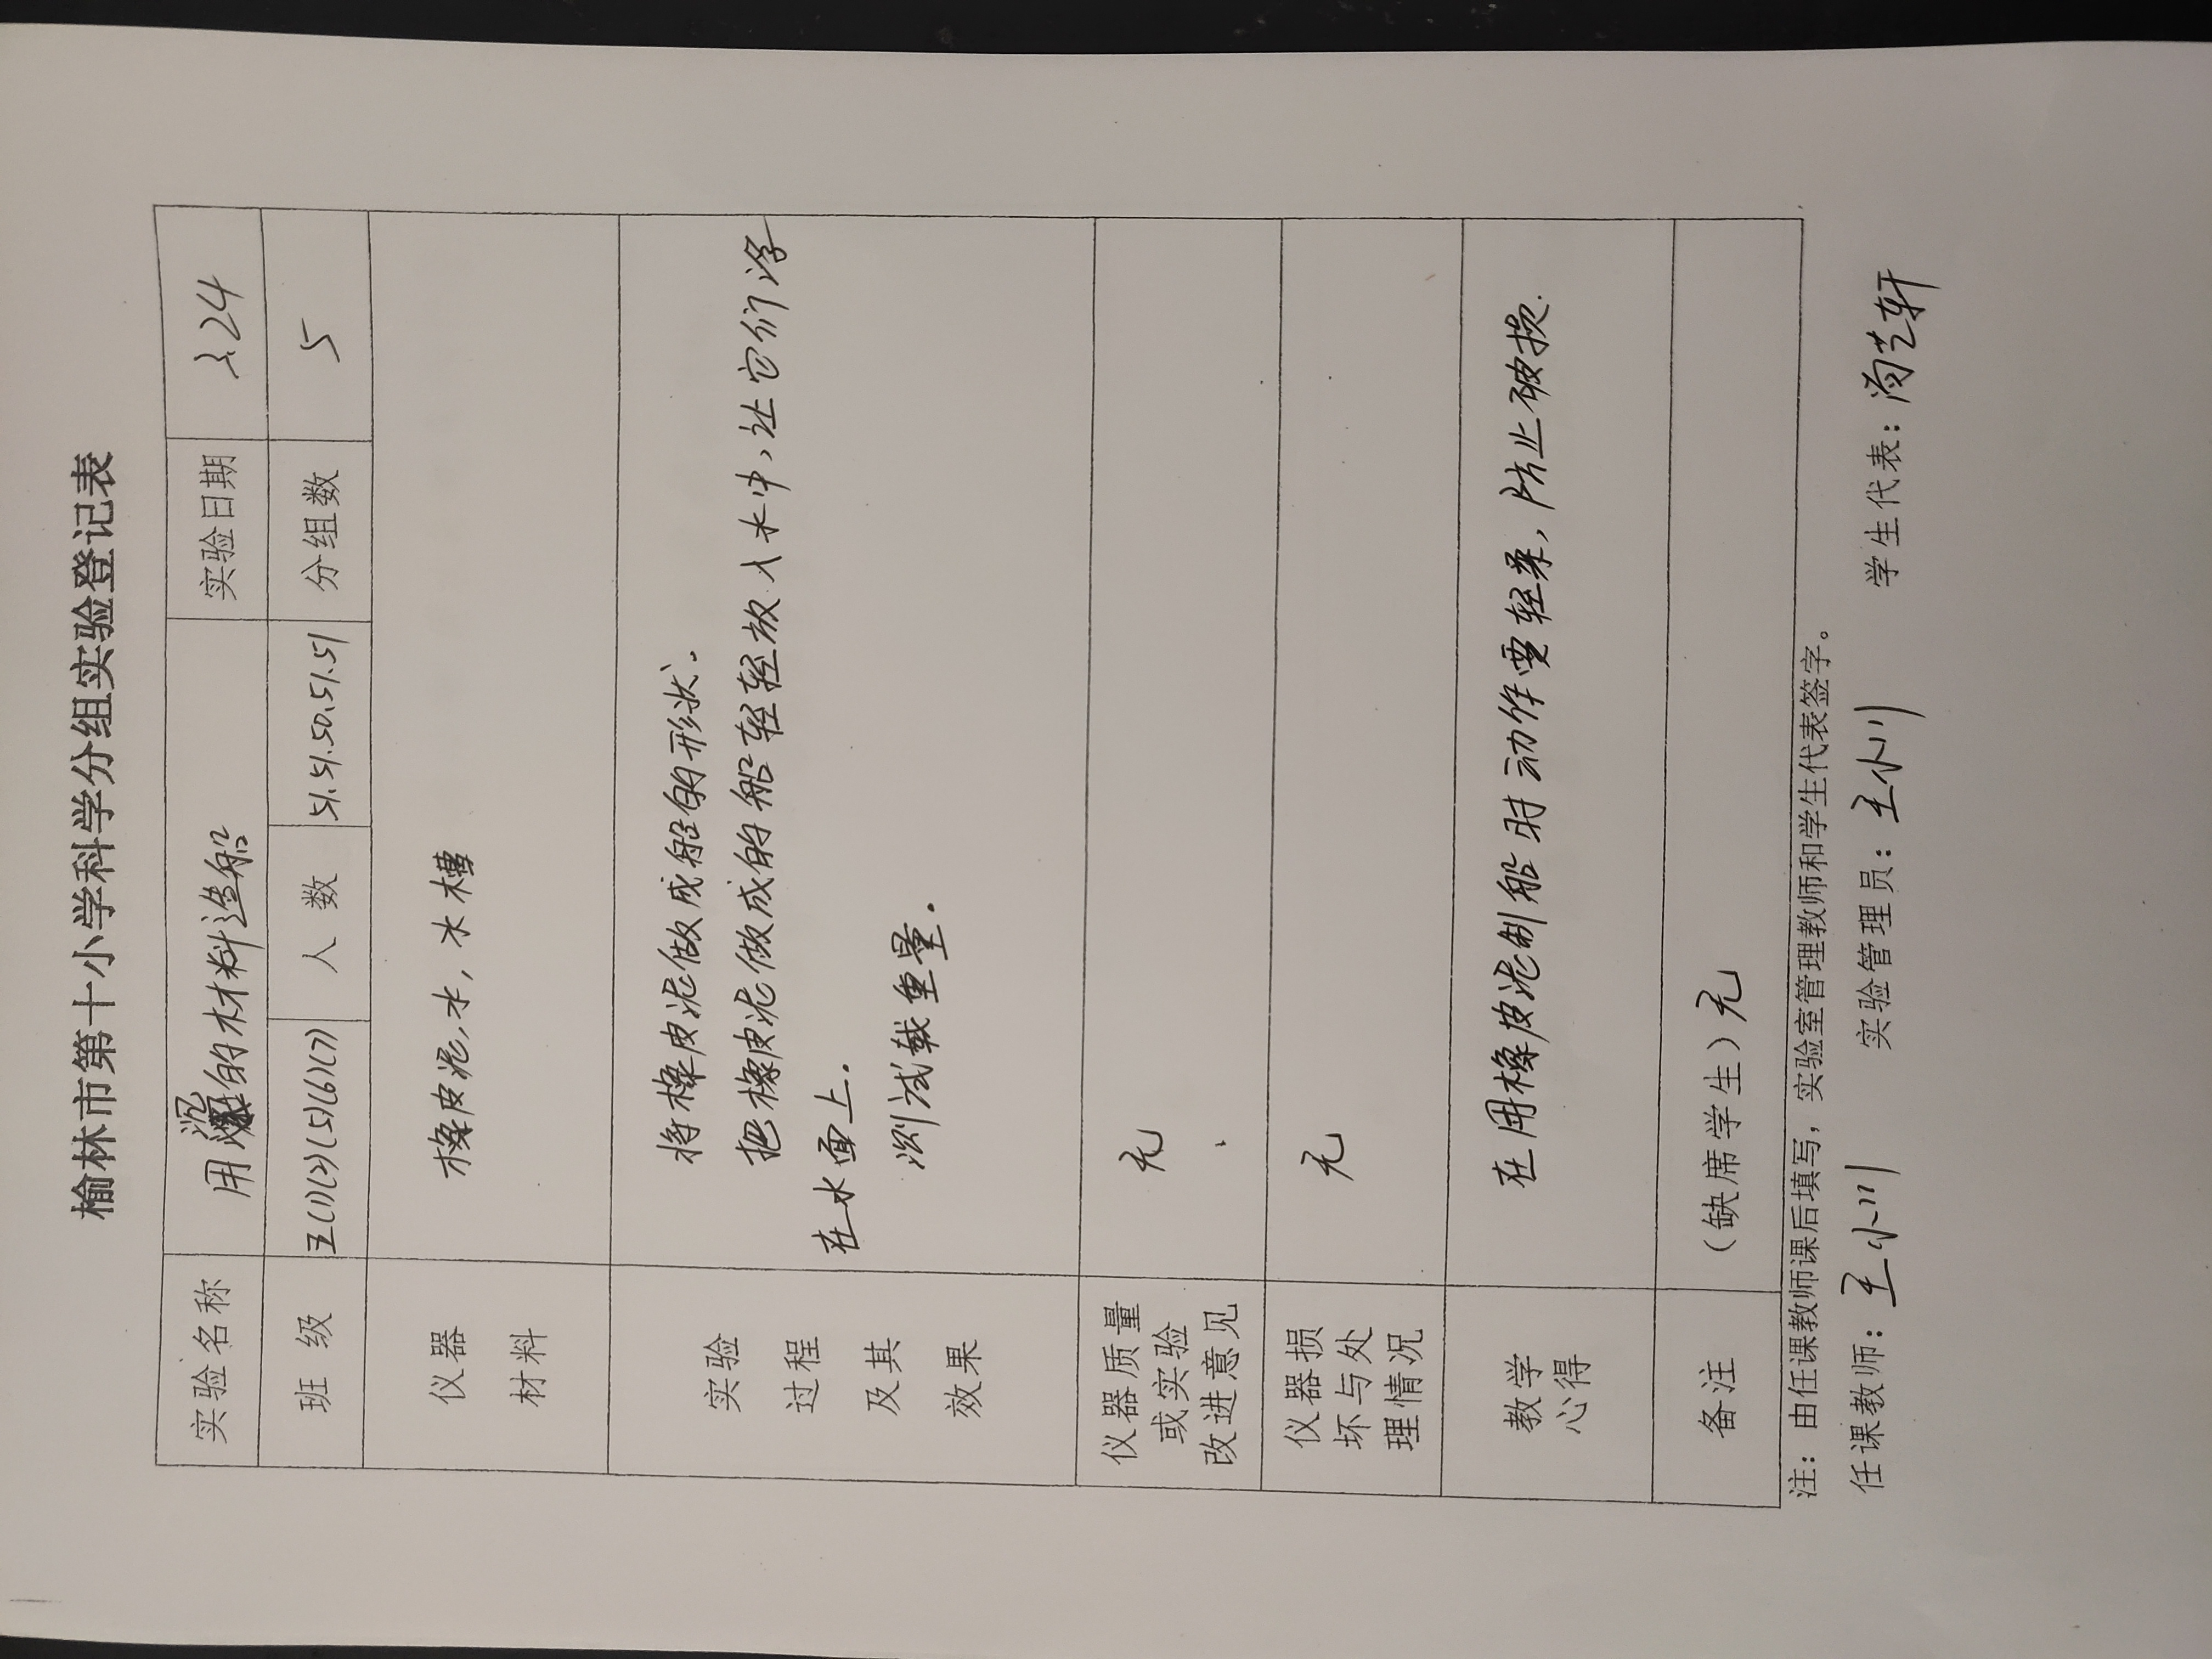 榆林市第十小学科学分组实验登记表
实验名称 用沉的材料造船 实验日期 3.24
班级 五(1)(2)(5)(6)(7) 人数 51.51.50.51.51 分组数 5
仪器材料 橡皮泥,水,水槽
实验过程及其效果 将橡皮泥做成船的形状.
把橡皮泥做成的船轻轻放入水中,让它们浮
在水面上.
测试载重量.
仪器质量或实验改进意见 无
仪器损坏与处理情况 无
教学心得 在用橡皮泥制船时动作要轻柔,防止破损.
备注 (缺席学生) 无
注:由任课教师课后填写,实验室管理教师和学生代表签字。
任课教师:王小川 实验管理员:王小川 学生代表: